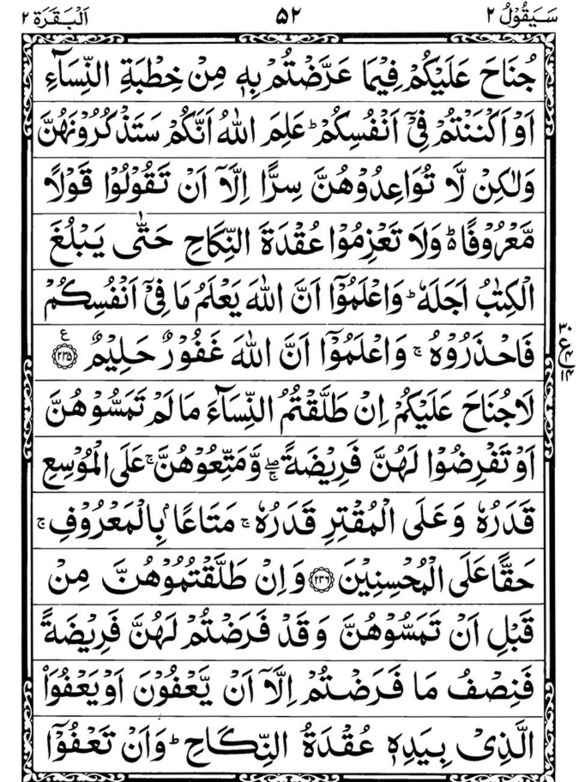 سَيَقُوْلُ ٢ ٥٢ اَلْبَقَرَة ٢
جُنَاحَ عَلَيْكُمْ فِيْمَا عَرَّضْتُمْ بِهٖ مِنْ خِطْبَةِ النِّسَآءِ
اَوْ اَكْنَنْتُمْ فِيْٓ اَنْفُسِكُمْ ؕ عَلِمَ اللّٰهُ اَنَّكُمْ سَتَذْكُرُوْنَهُنَّ
وَلٰكِنْ لَّا تُوَاعِدُوْهُنَّ سِرًّا اِلَّآ اَنْ تَقُوْلُوْا قَوْلًا
مَّعْرُوْفًا ؕ۬ وَلَا تَعْزِمُوْا عُقْدَةَ النِّكَاحِ حَتّٰى يَبْلُغَ
الْكِتٰبُ اَجَلَهٗ ؕ وَاعْلَمُوْٓا اَنَّ اللّٰهَ يَعْلَمُ مَا فِيْٓ اَنْفُسِكُمْ
فَاحْذَرُوْهُ ۚ وَاعْلَمُوْٓا اَنَّ اللّٰهَ غَفُوْرٌ حَلِيْمٌ ﴿٢٣٥﴾ ع
٣٠
ع
١٤
لَاجُنَاحَ عَلَيْكُمْ اِنْ طَلَّقْتُمُ النِّسَآءَ مَا لَمْ تَمَسُّوْهُنَّ
اَوْ تَفْرِضُوْا لَهُنَّ فَرِيْضَةً ۖۚ وَّمَتِّعُوْهُنَّ ۚ عَلَى الْمُوْسِعِ
قَدَرُهٗ وَعَلَى الْمُقْتِرِ قَدَرُهٗ ۚ مَتَاعًۢا بِالْمَعْرُوْفِ ۚ
حَقًّا عَلَى الْمُحْسِنِيْنَ ﴿٢٣٦﴾ وَاِنْ طَلَّقْتُمُوْهُنَّ مِنْ
قَبْلِ اَنْ تَمَسُّوْهُنَّ وَقَدْ فَرَضْتُمْ لَهُنَّ فَرِيْضَةً
فَنِصْفُ مَا فَرَضْتُمْ اِلَّآ اَنْ يَّعْفُوْنَ اَوْ يَعْفُوَا
الَّذِيْ بِيَدِهٖ عُقْدَةُ النِّكَاحِ ؕ وَاَنْ تَعْفُوْٓا